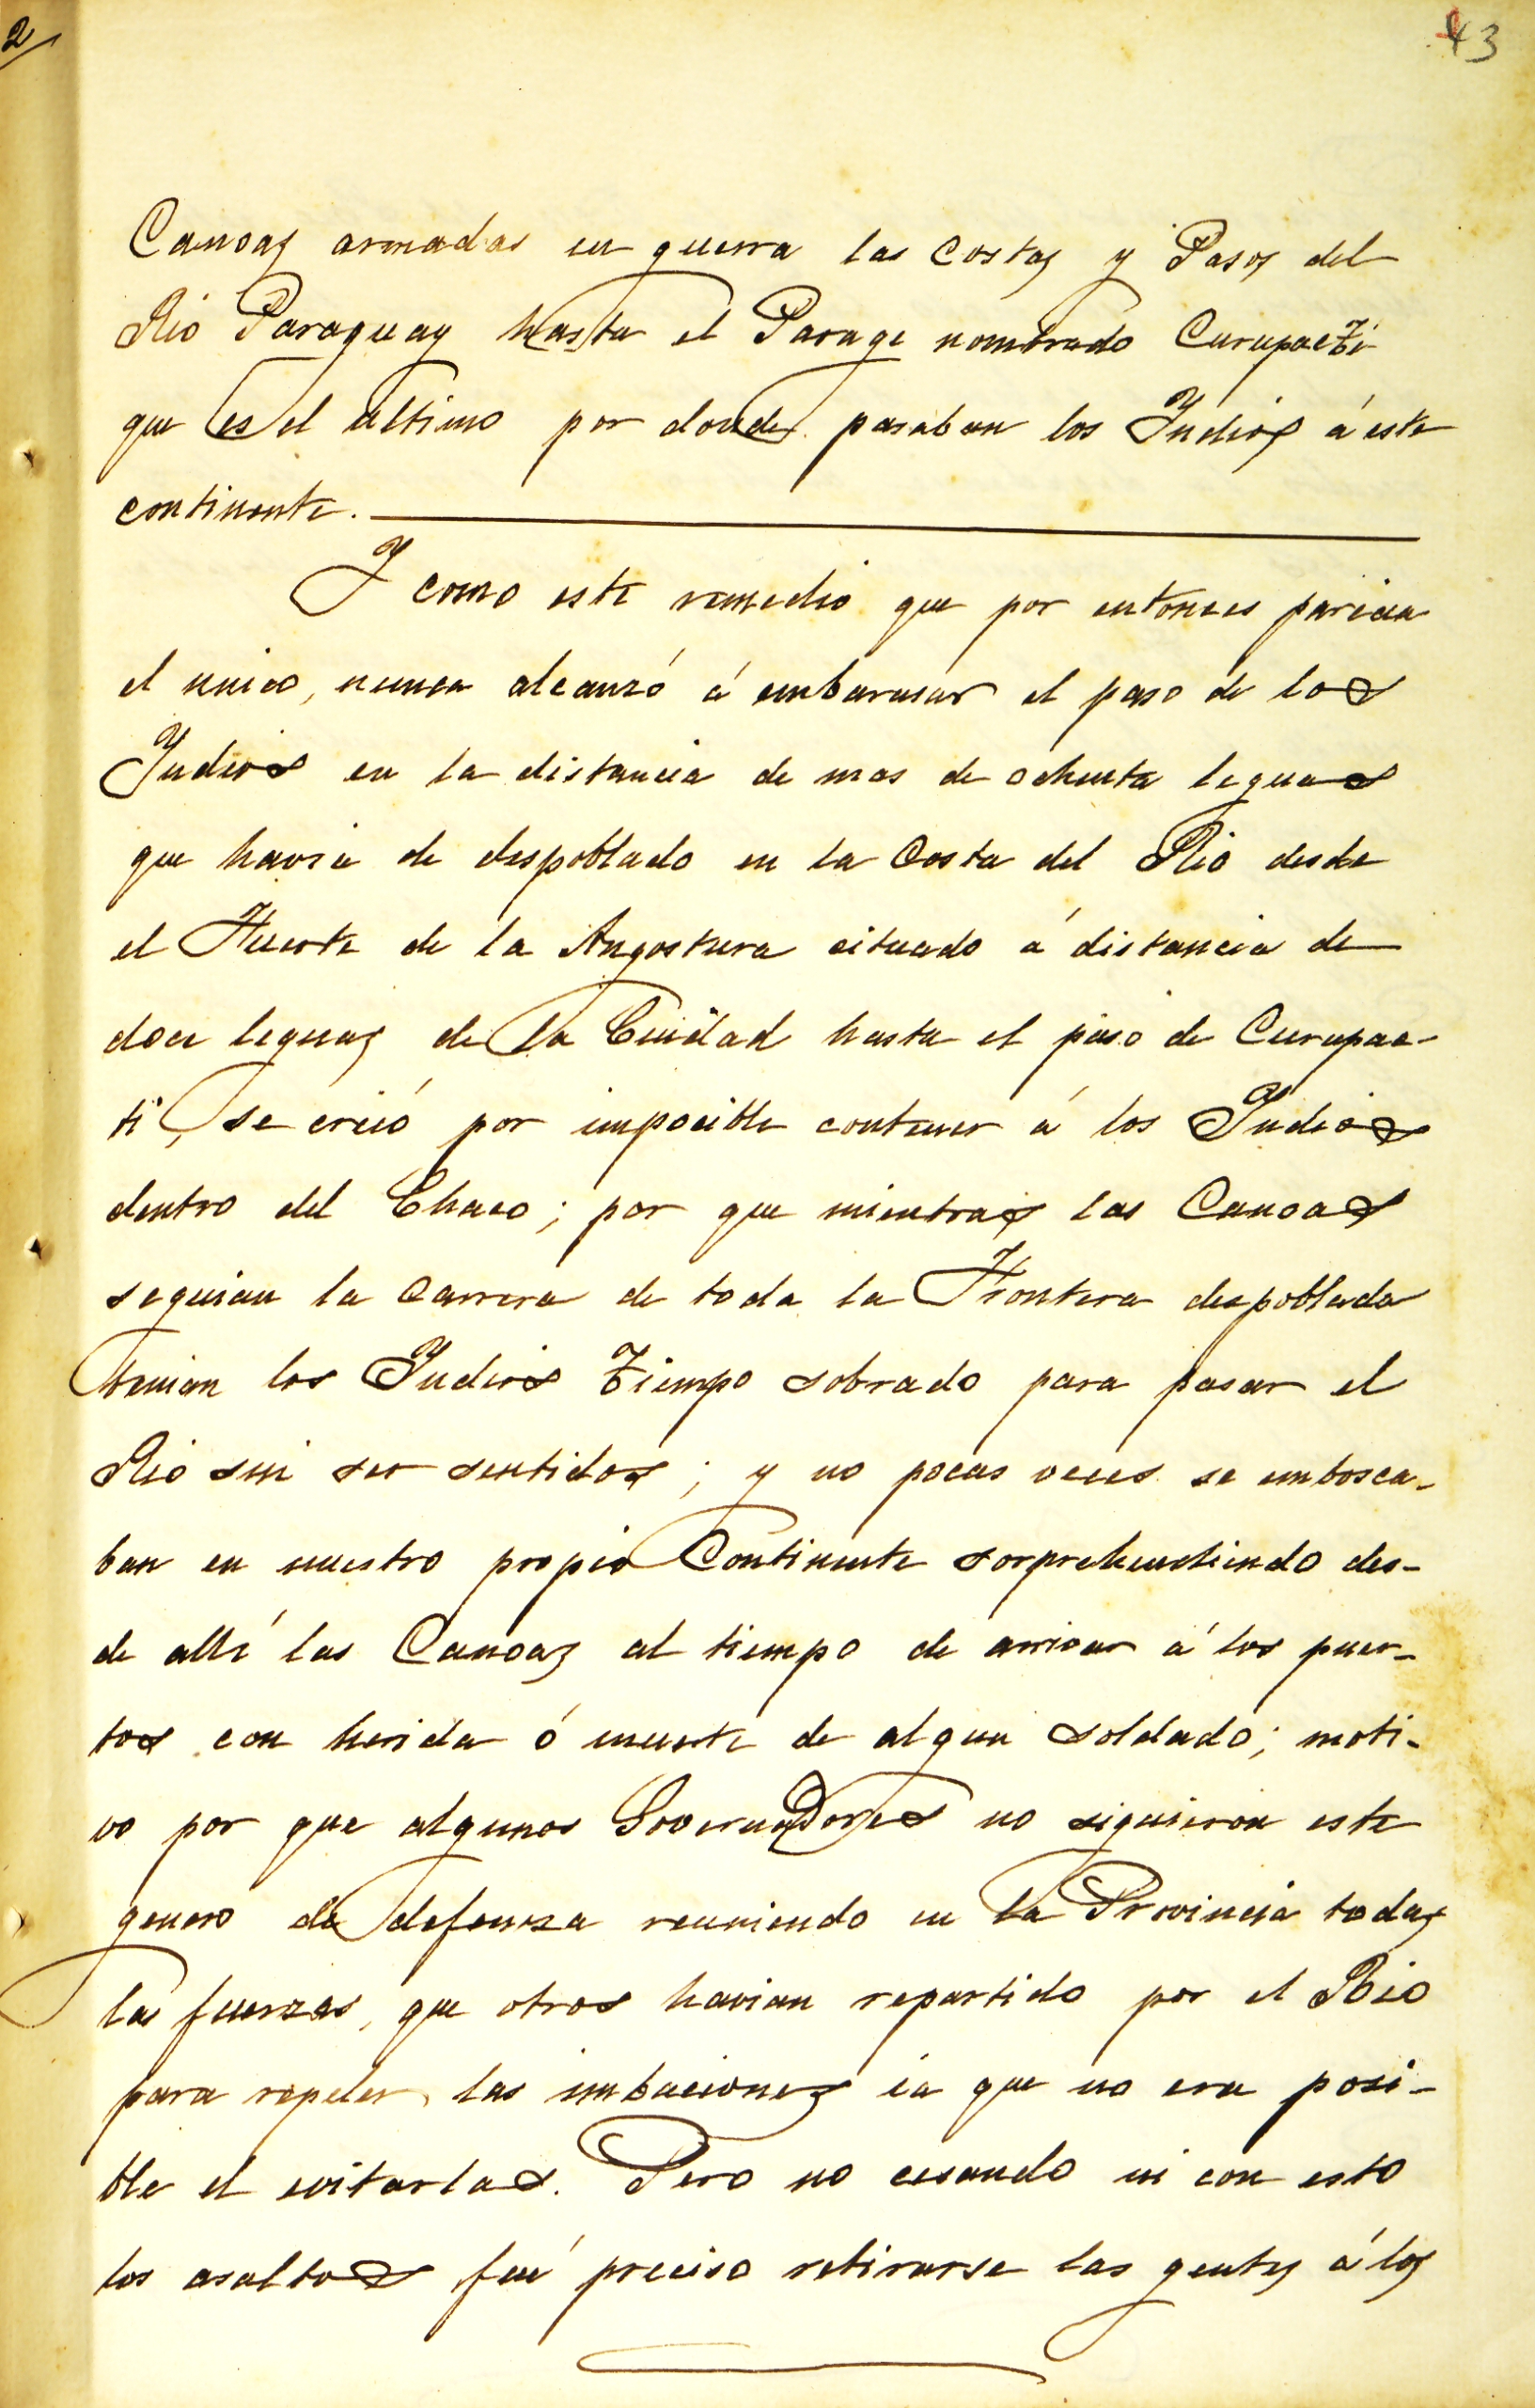 2
43
Canoas armadas en guerra las costas y Pasos del
Rio Paraguay hasta el Parage nombrado Curupaeti
que es el ultimo por donde pasaban los Yndios á este
continente.
Y como este remedio que por entonces parecia
el unico, nunca alcanzó á embarasar el paso de los
Yndios en la distancia de mas de ochenta leguas
que havia de despoblado en la Costa del Rio desde
el Fuerte de la Angostura cituado á distancia de
doce leguas de la Ciudad hasta el paso de Curupae-
ti, se crió por impocible contener á los Yndios
dentro del Chaco; por que mientras las Canoas
seguian la carrera de toda la Frontera despoblada
tenian los Yndios Tiempo sobrado para pasar el
Rio sin ser sentidos; y no pocas veces se embosca-
ban en nuestro propio Continente sorprehendiendo des-
de allí las Canoas al tiempo de arrivar á los puer-
tos con herida ó muerte de algun soldado; moti-
vo por que algunos Governadores no siguieron este
genero de defensa reuniendo en la Provincia todas
las fuerzas, que otros havian repartido por el Rio
para repeler las imbaciones ia que no era posi-
ble el evitarlas. Pero no cesando ni con esto
los asaltos fué preciso retirarse las gentes á los